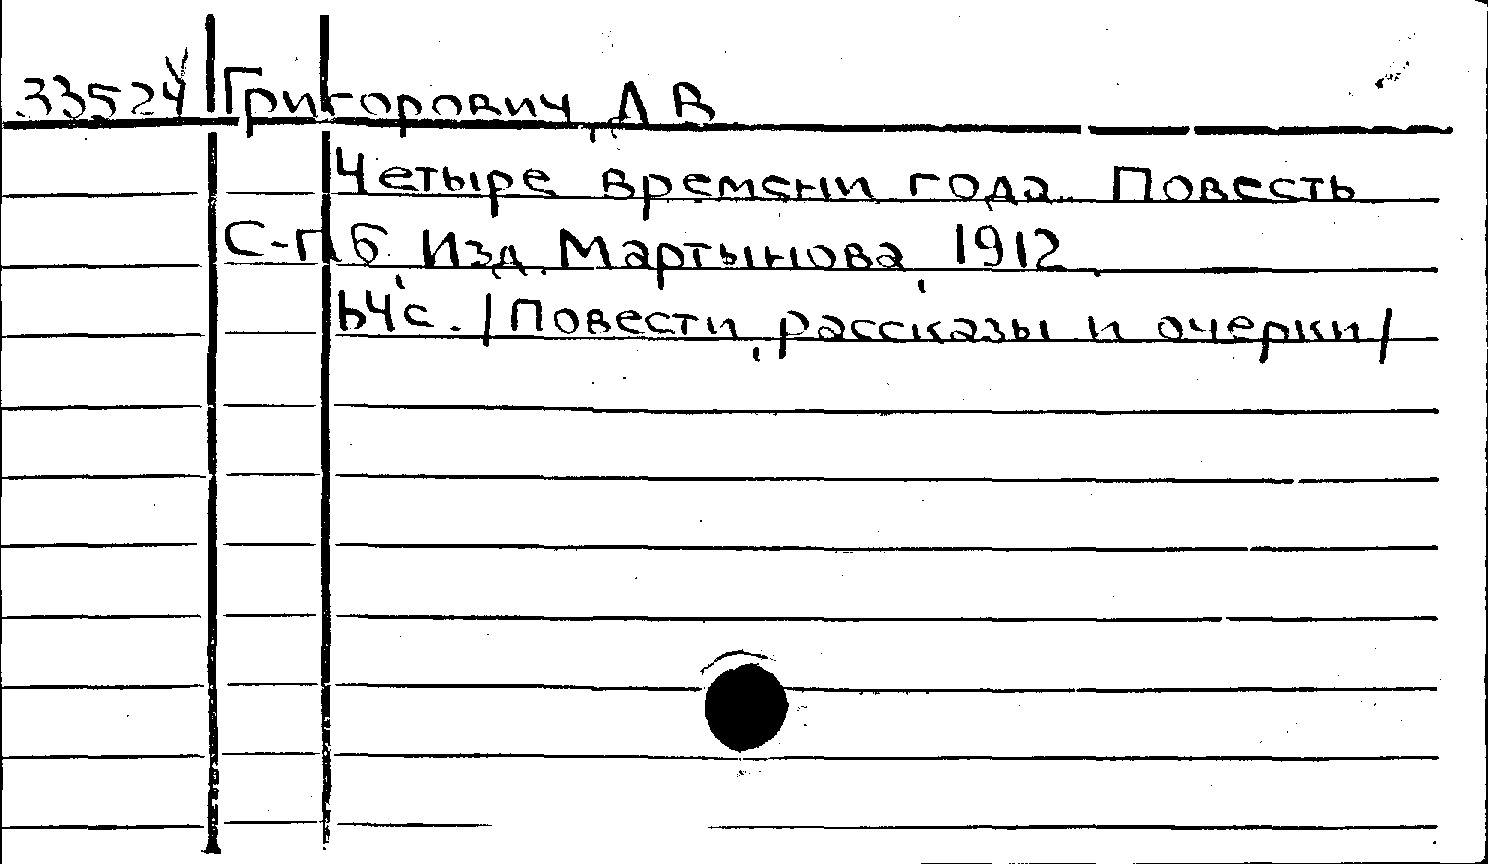 33524 Григорович, Д В
Четыре времени года. Повесть
С-П б, Изд. Мартынова, 1912.
64 с. /Повести, рассказы и очерки/